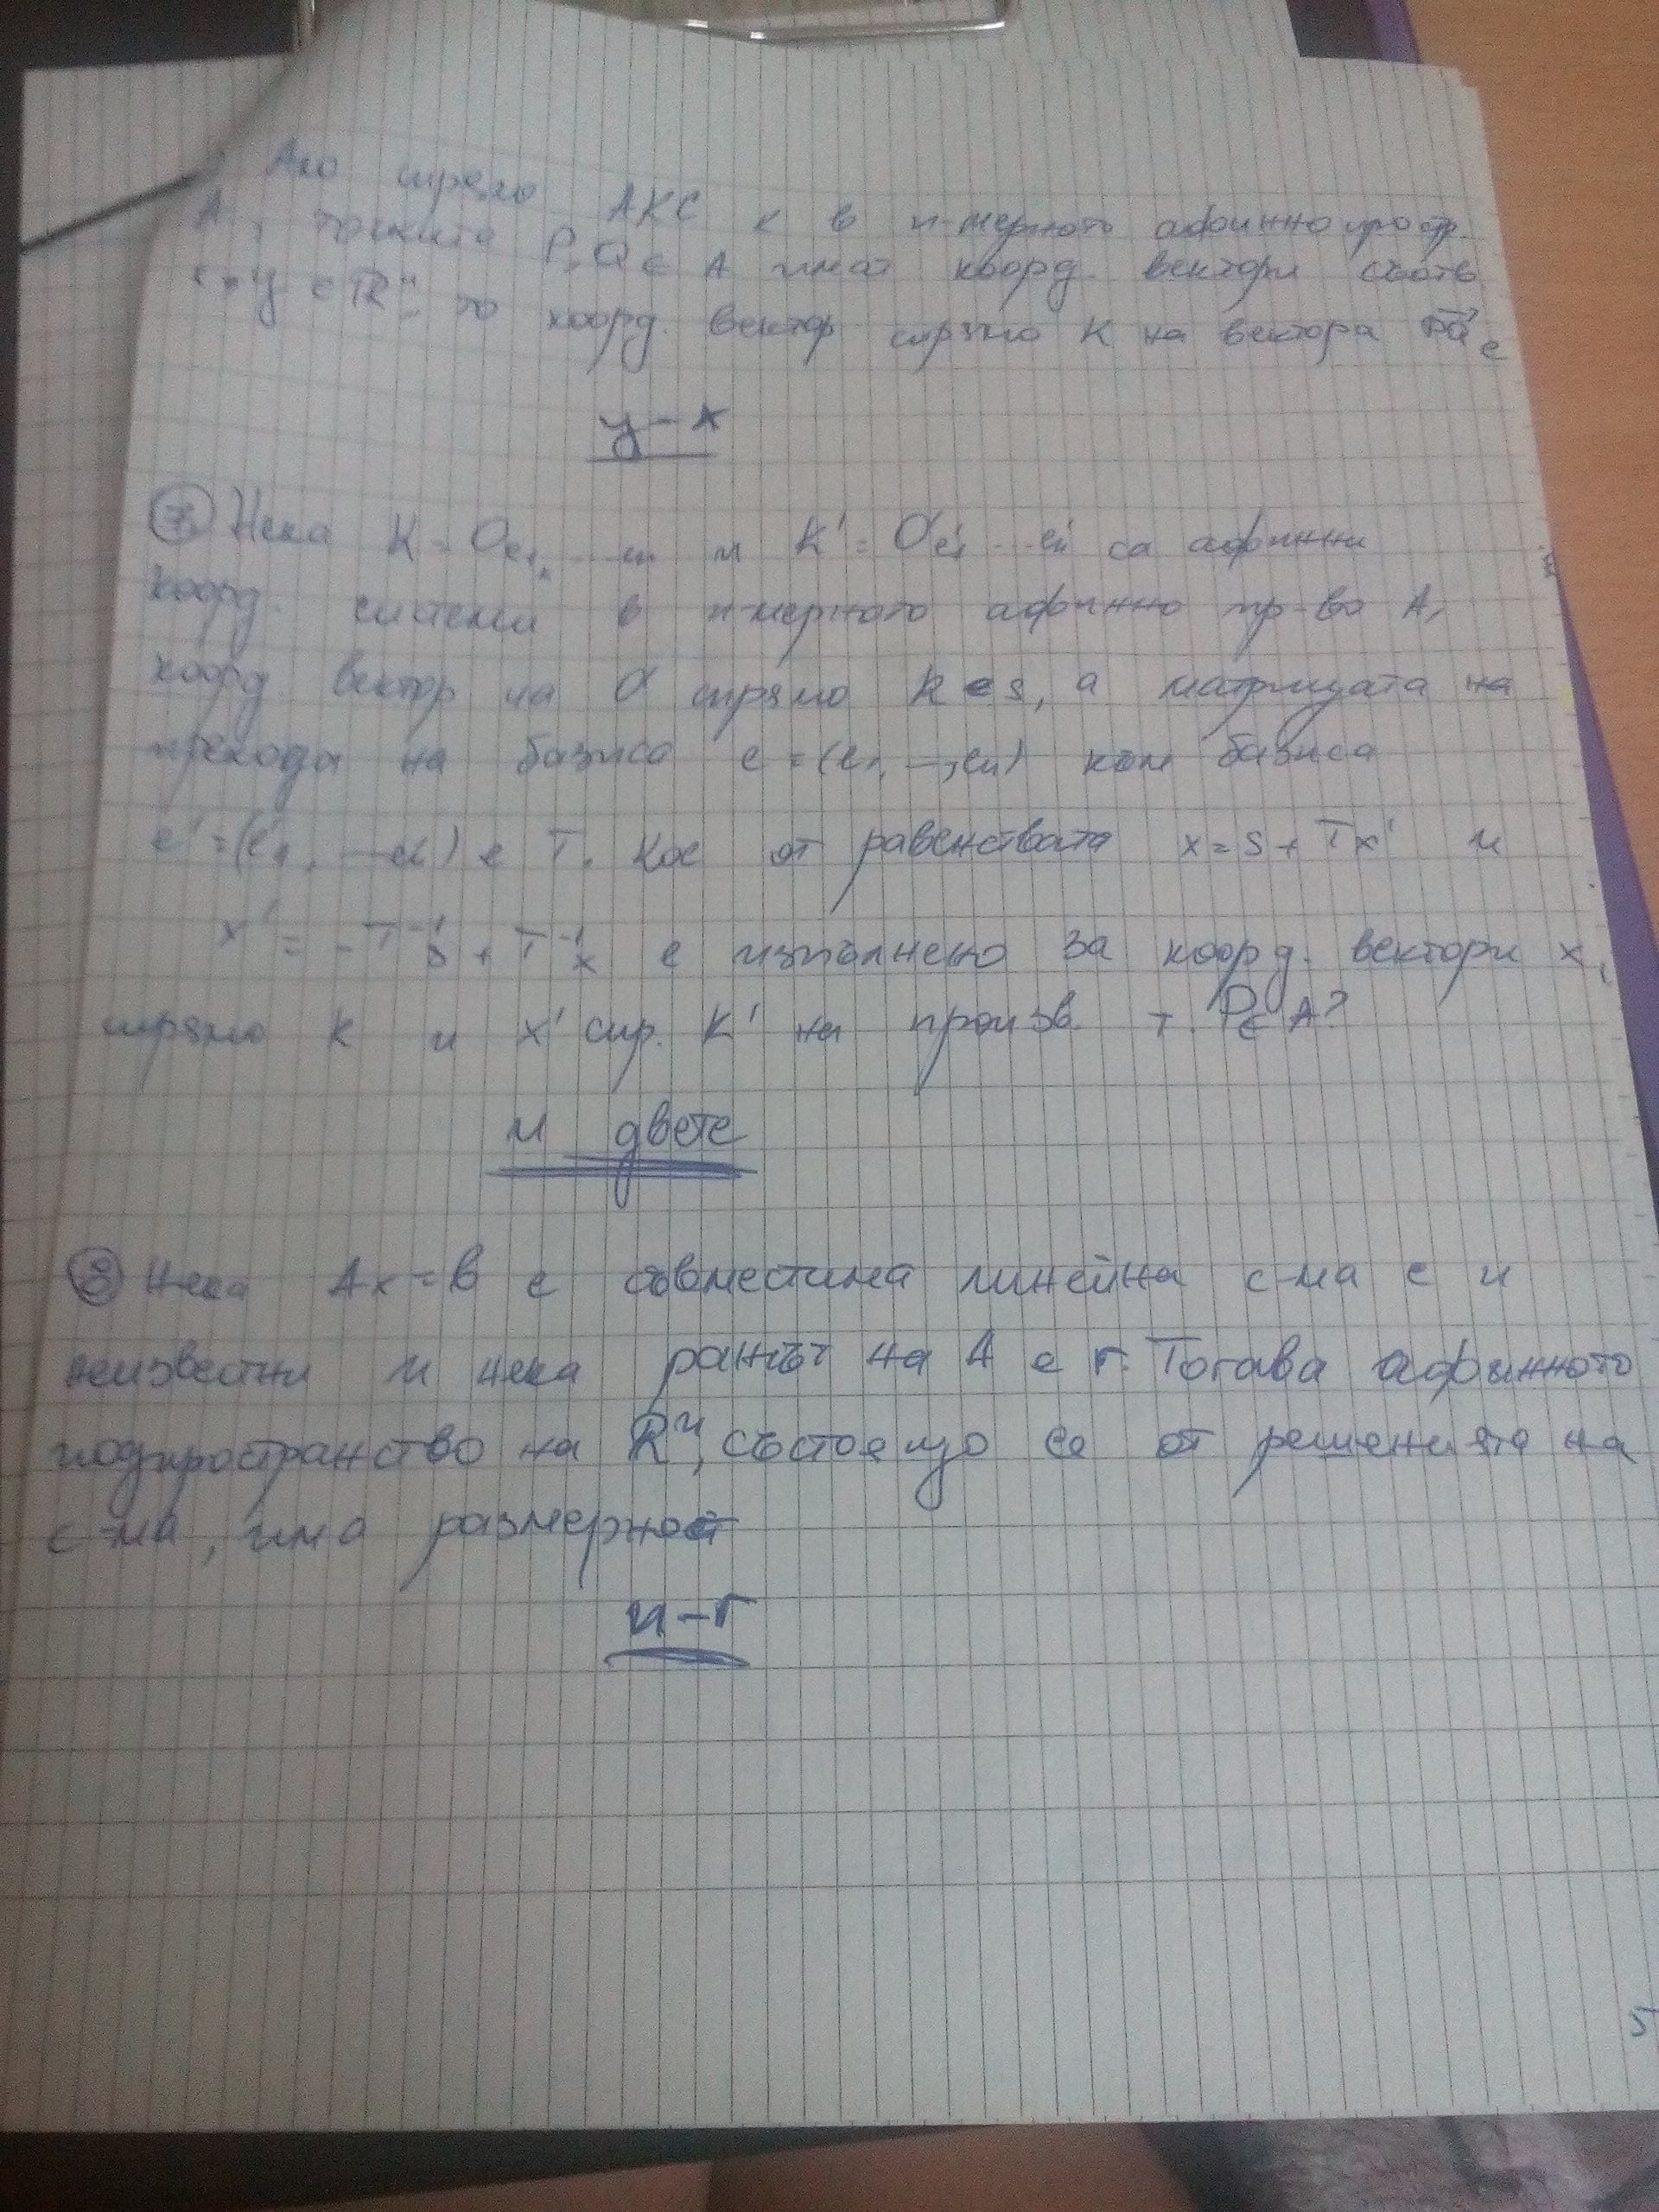 Ако спрямо АКС К в n-мерното афинно простр.
А, точките P, Q ∈ A имат коорд. вектори съотв.
x и y ∈ ℝⁿ, то коорд. вектор спрямо К на вектора е
y-x
⑦ Нека K=Oe₁...en и K'=O'e₁'...en' са афинни
коорд. системи в n-мерното афинно пр-во А,
коорд. вектор на O' спрямо К е s, а матрицата на
прехода на базиса e=(e₁, ..., en) към базиса
e'=(e₁', ..., en') е T. Кое от равенствата x=s+Tx' и
x'=-T⁻¹s+T⁻¹x е изпълнено за коорд. вектори x,
спрямо К и x' спр. К' на произв. т. P∈A?
И двете
⑧ Нека Ax=b е съвместима линейна с-ма с n
неизвестни и нека рангът на А е r. Тогава афинното
подпространство на ℝⁿ, състоящо се от решенията на
с-ма, има размерност
n-r
5